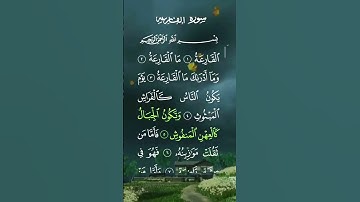 سورة القارعة
بسم الله الرحمن الرحيم
ٱلْقَارِعَةُ ١ مَا ٱلْقَارِعَةُ ٢
وَمَآ أَدْرَىٰكَ مَا ٱلْقَارِعَةُ ٣ يَوْمَ
يَكُونُ ٱلنَّاسُ كَٱلْفَرَاشِ
ٱلْمَبْثُوثِ ٤ وَتَكُونُ ٱلْجِبَالُ
كَٱلْعِهْنِ ٱلْمَنفُوشِ ٥ فَأَمَّا مَن
ثَقُلَتْ مَوَٰزِينُهُۥ ٦ فَهُوَ فِي